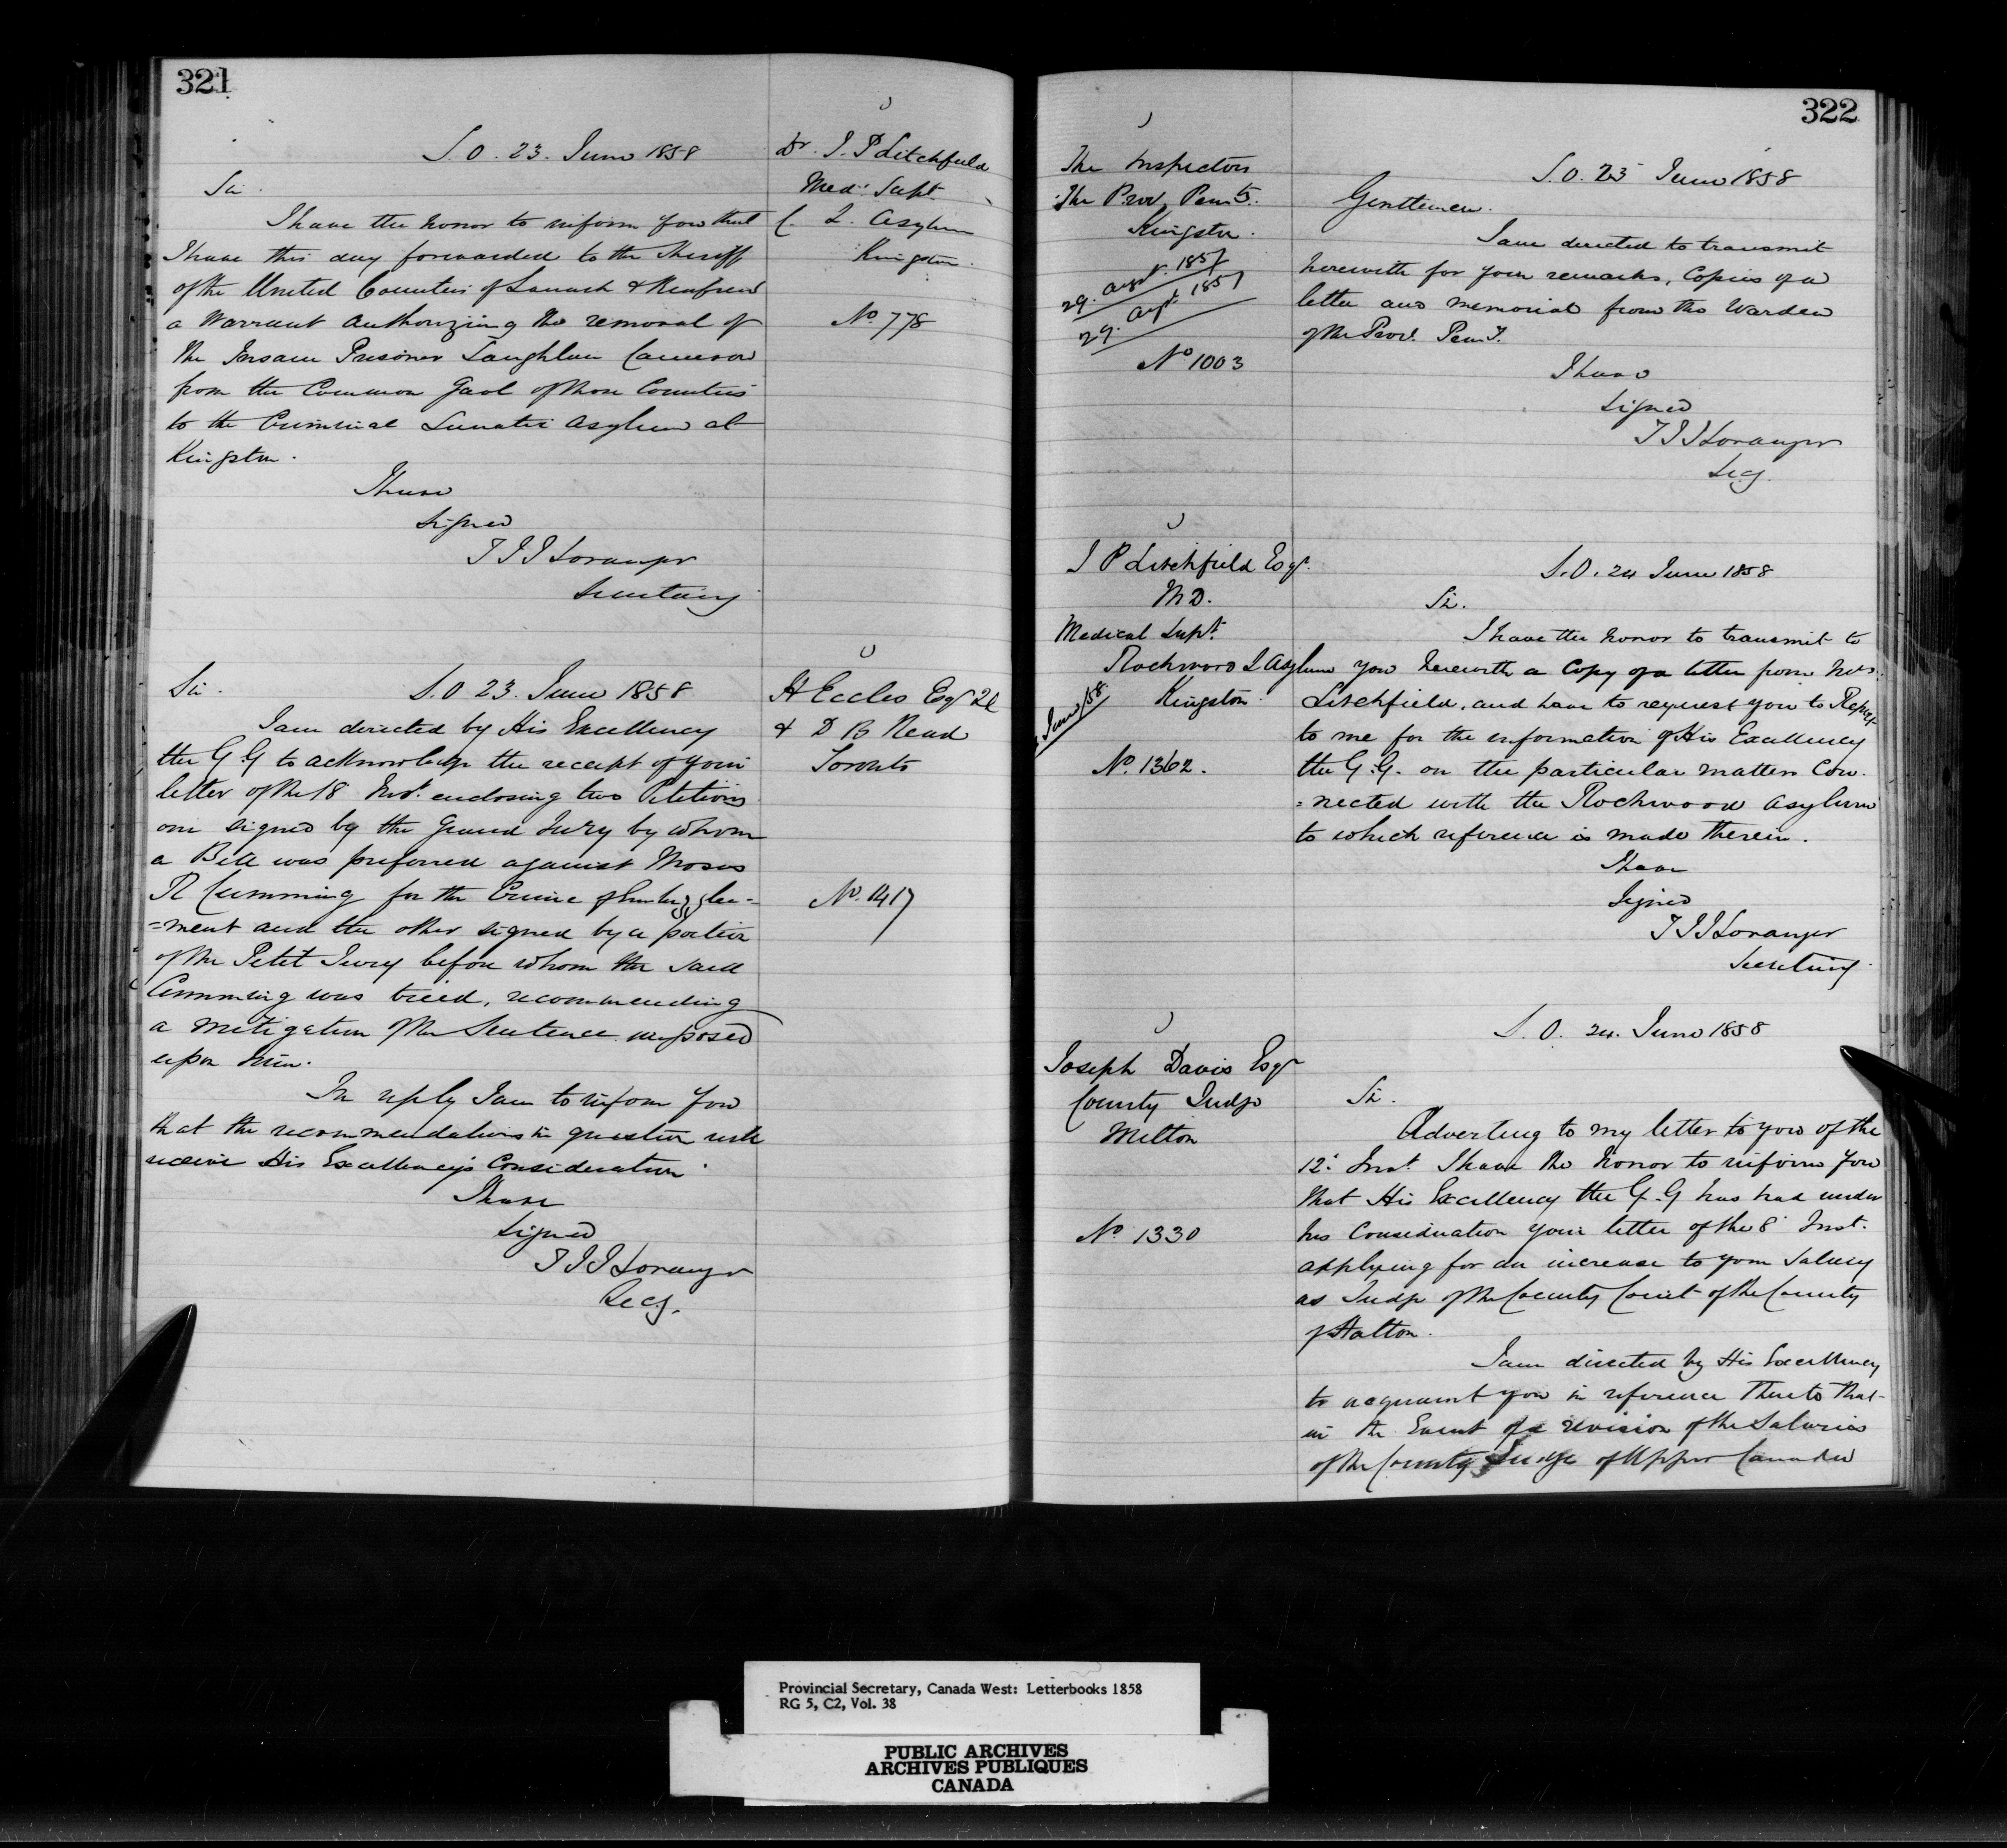 321
S. O. 23. June 1858
Dr. J. P Litchfield
Med: Supt.
C. L. Asylum
Kingston.
No. 778
Sir.
I have the honor to inform you that
I have this day forwarded to the Sheriff
of the United Counties of Lanark & Renfrew
a Warrant authorizing the removal of
the Insane Prisoner Laughlan Cameron
from the Common Gaol of those Counties
to the Criminal Lunatic Asylum at
Kingston.
I have
Signed
T J J Loranger
Secretary
H Eccles Esqr
& D B Read
Toronto
No. 1417
Sir. S. O 23. June 1858
I am directed by His Excellency
the G. G to acknowledge the receipt of your
letter of the 18 Inst. enclosing two Petitions
one signed by the Grand Jury by whom
a Bill was preferred against Moses
R Cumming for the Crime of Embezzle-
=ment and the other signed by a portion
of the Petit Jury before whom the said
Cumming was tried, recommending
a mitigation of the Sentence imposed
upon him.
In reply I am to inform you
that the recommendations in question will
receive His Excellency's Consideration.
I have
Signed
T J J Loranger
Secy.
322
The Inspectors
The Prov. Penty.
Kingston.
29. Augt. 1857
29. Augt 1857
No 1003
S. O. 23 June 1858
Gentlemen.
I am directed to transmit
herewith for your remarks, Copies of a
letter and memorial from the Warden
of the Prov. Peny.
I have
Signed
T J J Loranger
Secy.
J P Litchfield Esqr.
M D.
Medical Supt.
Rockwood L Asylum
Kingston.
June/58
No. 1362.
S. O. 24 June 1858
Sir.
I have the honor to transmit to
you herewith a Copy of a letter from Mrs.
Litchfield, and have to request you to Report
to me for the information of His Excellency
the G. G. on the particular matters Con-
=nected with the Rockwood Asylum
to which reference is made therein.
I have
Signed
T J J Loranger
Secretary.
Joseph Davis Esqr
County Judge
Milton
No. 1330
S. O. 24. June 1858
Sir.
Adverting to my letter to you of the
12. Inst. I have the honor to inform you
that His Excellency the G. G has had under
his Consideration your letter of the 8 Inst.
applying for an increase to your Salary
as Judge of the County Court of the County
of Halton.
I am directed by His Excellency
to acquaint you in reference thereto that
in the Event of a revision of the Salaries
of the County Judge of Upper Canada
Provincial Secretary, Canada West: Letterbooks 1858
RG 5, C2, Vol. 38
PUBLIC ARCHIVES
ARCHIVES PUBLIQUES
CANADA